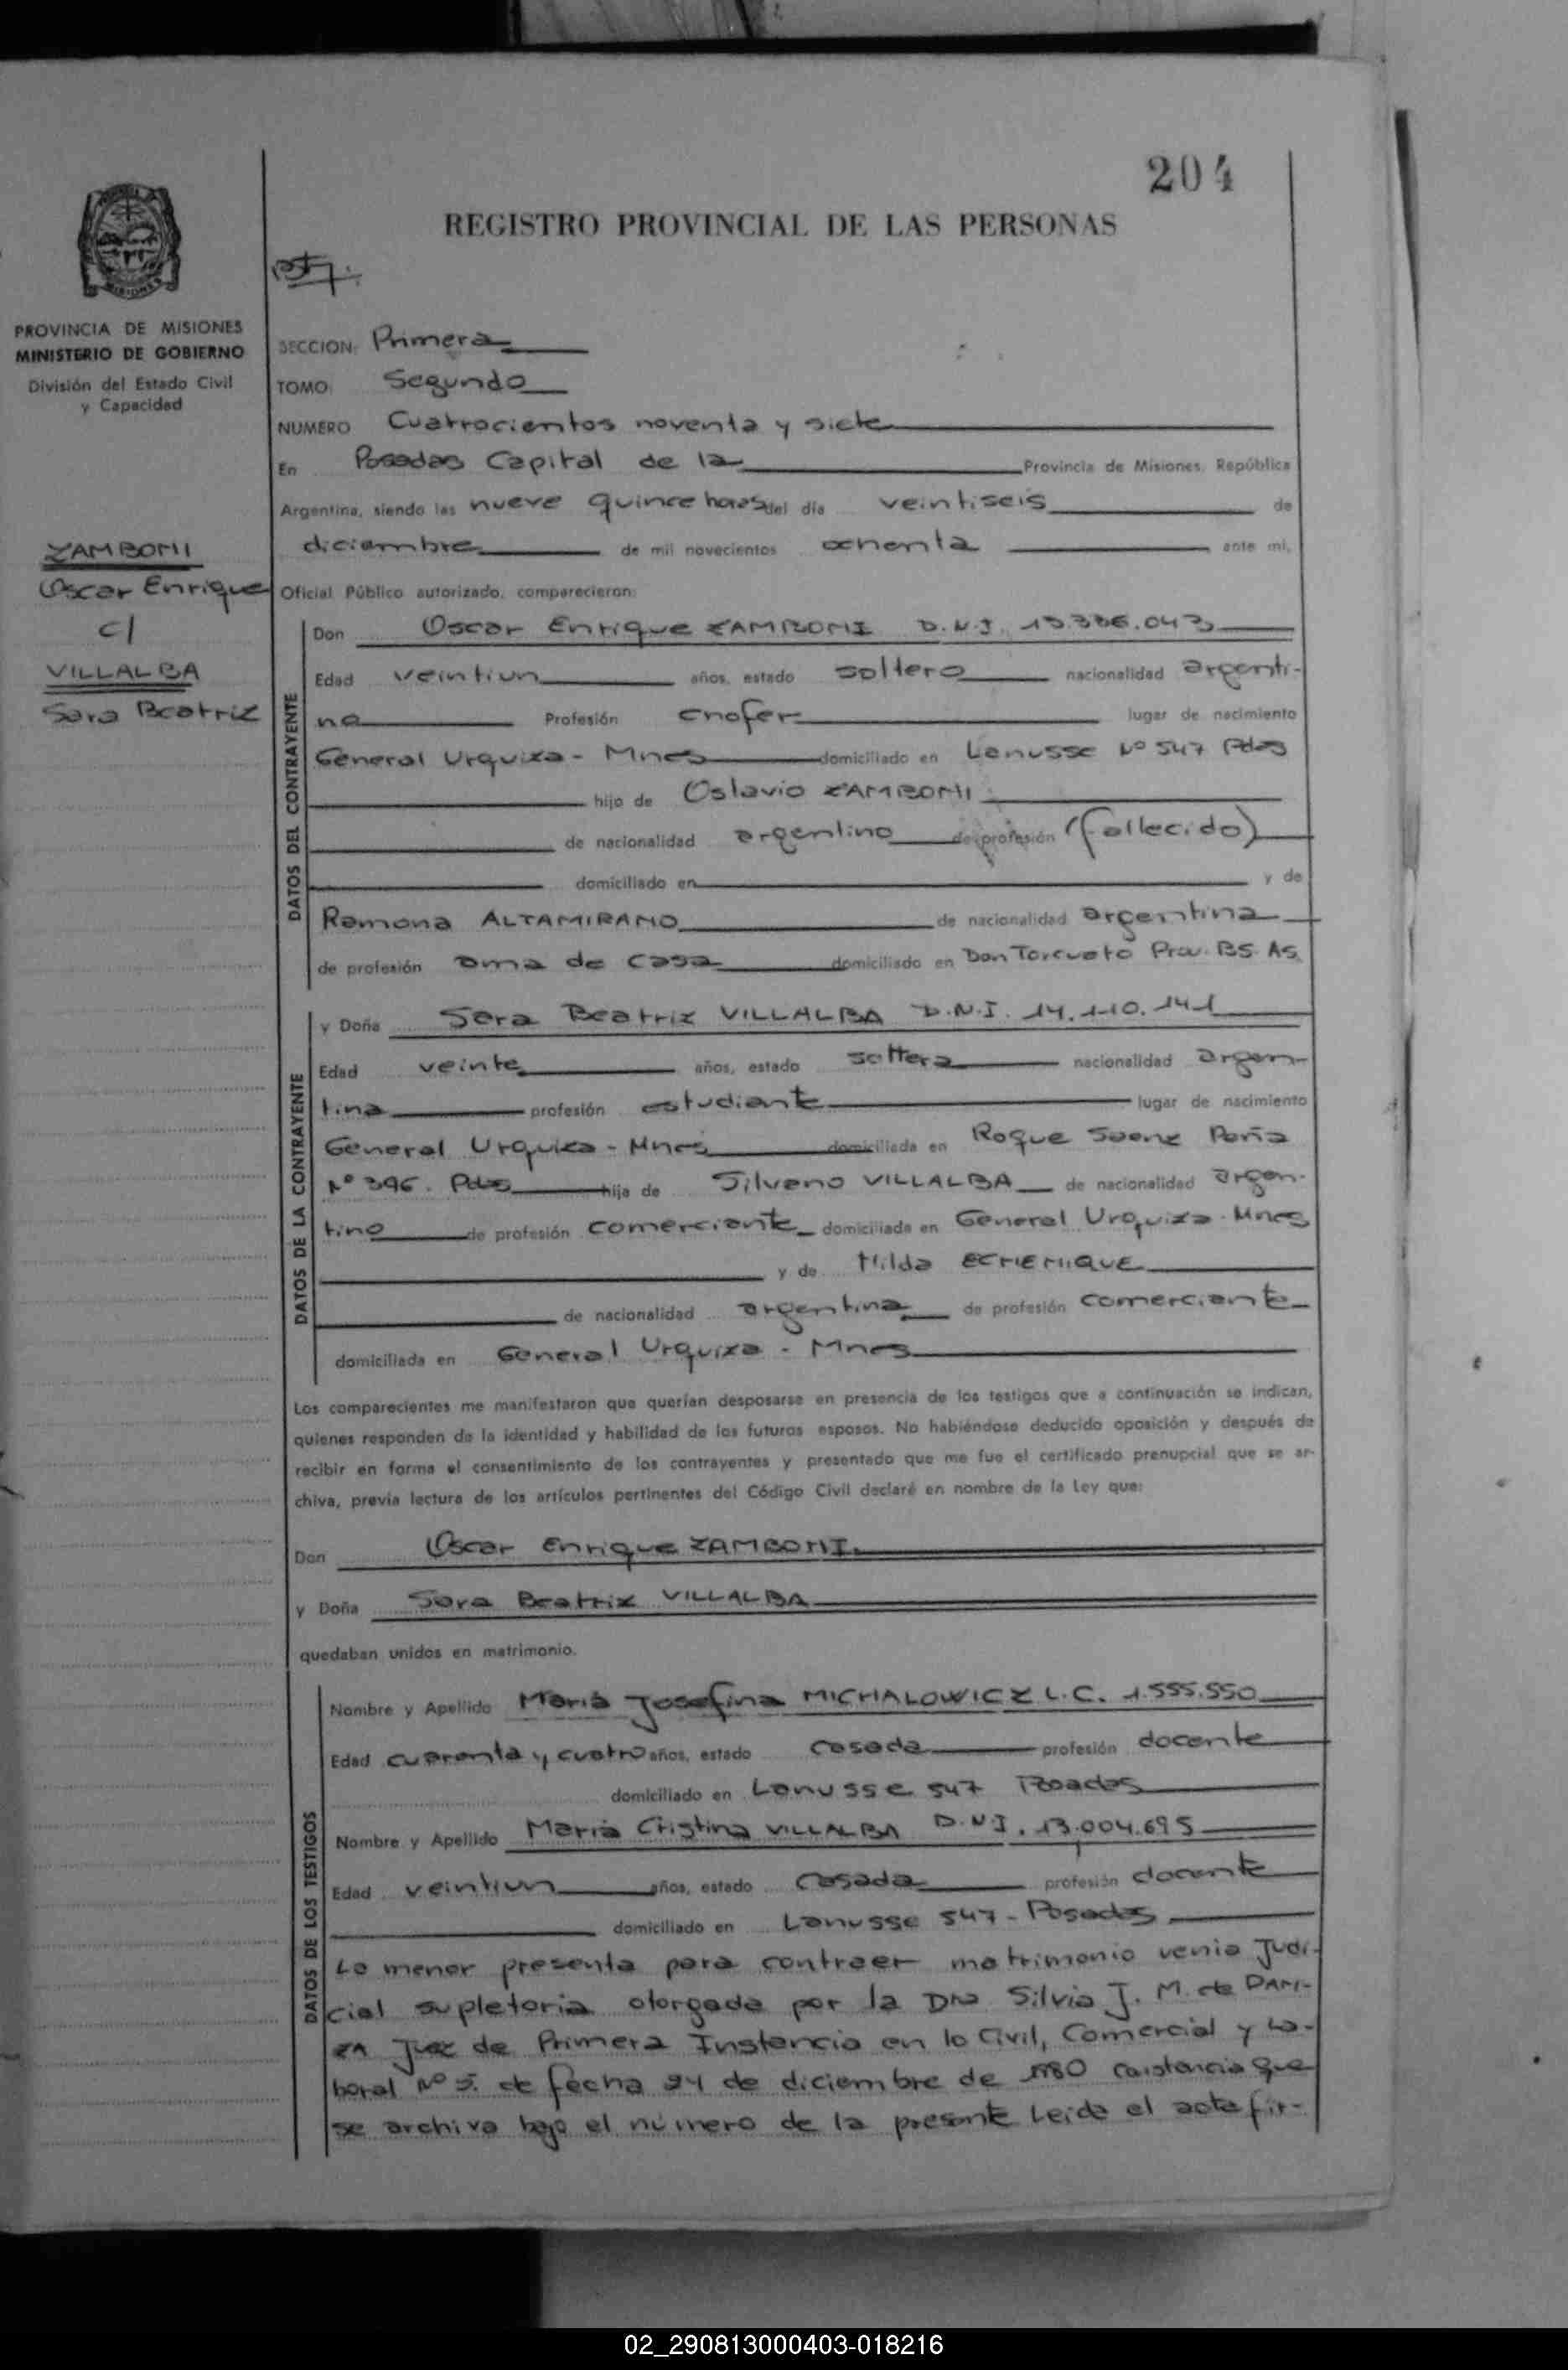 204
REGISTRO PROVINCIAL DE LAS PERSONAS
MISIONES
PROVINCIA DE MISIONES
MINISTERIO DE GOBIERNO
División del Estado Civil
y Capacidad
ZAMBONI
Oscar Enrique
c/
VILLALBA
Sara Beatriz
SECCION: Primera
TOMO: Segundo
NUMERO Cuatrocientos noventa y siete
En Posadas Capital de la Provincia de Misiones, República
Argentina, siendo las nueve quince horas del día veintiseis de
diciembre de mil novecientos ochenta ante mi,
Oficial Público autorizado, comparecieron:
DATOS DEL CONTRAYENTE
Don Oscar Enrique ZAMBONI D.N.I.
Edad veintiun años, estado soltero nacionalidad argenti-
no Profesión chofer lugar de nacimiento
General Urquiza - Mnes domiciliado en Lanusse Nº 547 Pdas
hijo de Oslavio ZAMBONI
de nacionalidad argentino de profesión (fallecido)
domiciliado en y de
Ramona ALTAMIRANO de nacionalidad argentina
de profesión ama de casa domiciliado en Don Torcuato Prov. BS. AS.
DATOS DE LA CONTRAYENTE
y Doña Sara Beatriz VILLALBA D.N.I. 14.110.141
Edad veinte años, estado soltera nacionalidad argen-
tina profesión estudiante lugar de nacimiento
General Urquiza - Mnes domiciliada en Roque Saenz Peña
Nº 396. Pdas hija de Silvano VILLALBA de nacionalidad argen-
tino de profesión comerciante domiciliada en General Urquiza - Mnes
y de Hilda ECHENIQUE
de nacionalidad argentina de profesión comerciante
domiciliada en General Urquiza - Mnes
Los comparecientes me manifestaron que querían desposarse en presencia de los testigos que a continuación se indican,
quienes responden de la identidad y habilidad de los futuros esposos. No habiéndose deducido oposición y después de
recibir en forma el consentimiento de los contrayentes y presentado que me fue el certificado prenupcial que se ar-
chiva, previa lectura de los artículos pertinentes del Código Civil declaré en nombre de la Ley que:
Don Oscar Enrique ZAMBONI
y Doña Sara Beatriz VILLALBA
quedaban unidos en matrimonio.
DATOS DE LOS TESTIGOS
Nombre y Apellido María Josefina MICHALOWICZ L.C. 1.555.550
Edad cuarenta y cuatro años, estado casada profesión docente
domiciliado en Lanusse 547 Posadas
Nombre y Apellido María Cristina VILLALBA D.N.I. 13.004.695
Edad veintiun años, estado casada profesión docente
domiciliado en Lanusse 547 - Posadas
La menor presenta para contraer matrimonio venia Judi-
cial supletoria otorgada por la Dra Silvia J. M. de
Juez de Primera Instancia en lo Civil, Comercial y La-
boral Nº 5. de fecha 24 de diciembre de 1980 constancia que
se archiva bajo el número de la presente Leida el acta fir-
02_290813000403-018216